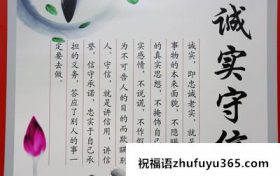 诚实守信
诚实，即忠诚老实，就是
事物的本来面貌，不隐瞒
的真实思想，不掩饰自己
实感情，不说谎，不作假
为不可告人的目的而欺瞒别
人。守信，就是讲信用，讲信
誉，信守承诺，忠实于自己承
担的义务，答应了别人的事一
定要去做。
祝福语zhufuyu365.com